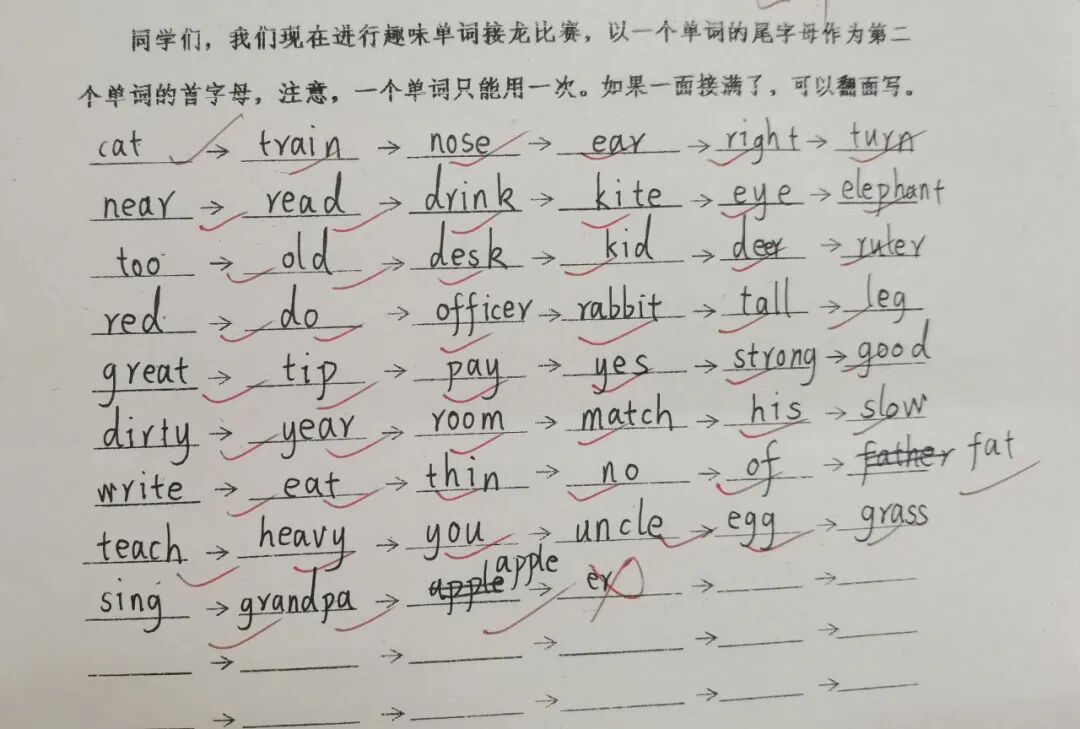 同学们，我们现在进行趣味单词接龙比赛，以一个单词的尾字母作为第二
个单词的首字母，注意，一个单词只能用一次。如果一面接满了，可以翻面写。
cat → train → nose → ear → right → turn
near → read → drink → kite → eye → elephant
too → old → desk → kid → deer → ruter
red → do → officer → rabbit → tall → leg
great → tip → pay → yes → strong → good
dirty → year → room → match → his → slow
write → eat → thin → no → of → father fat
teach → heavy → you → uncle → egg → grass
sing → grandpa → apple apple → er → →
→ → → → →
→ → → → →